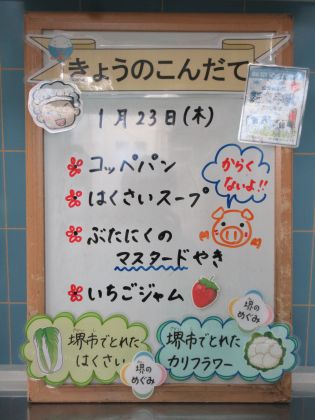 きょうのこんだて
1月23日(木)
コッペパン
はくさいスープ
からく
ないよ!!
ぶたにくの
マスタードやき
いちごジャム
堺のめぐみ
堺市でとれた
はくさい
堺のめぐみ
堺市でとれた
カリフラワー